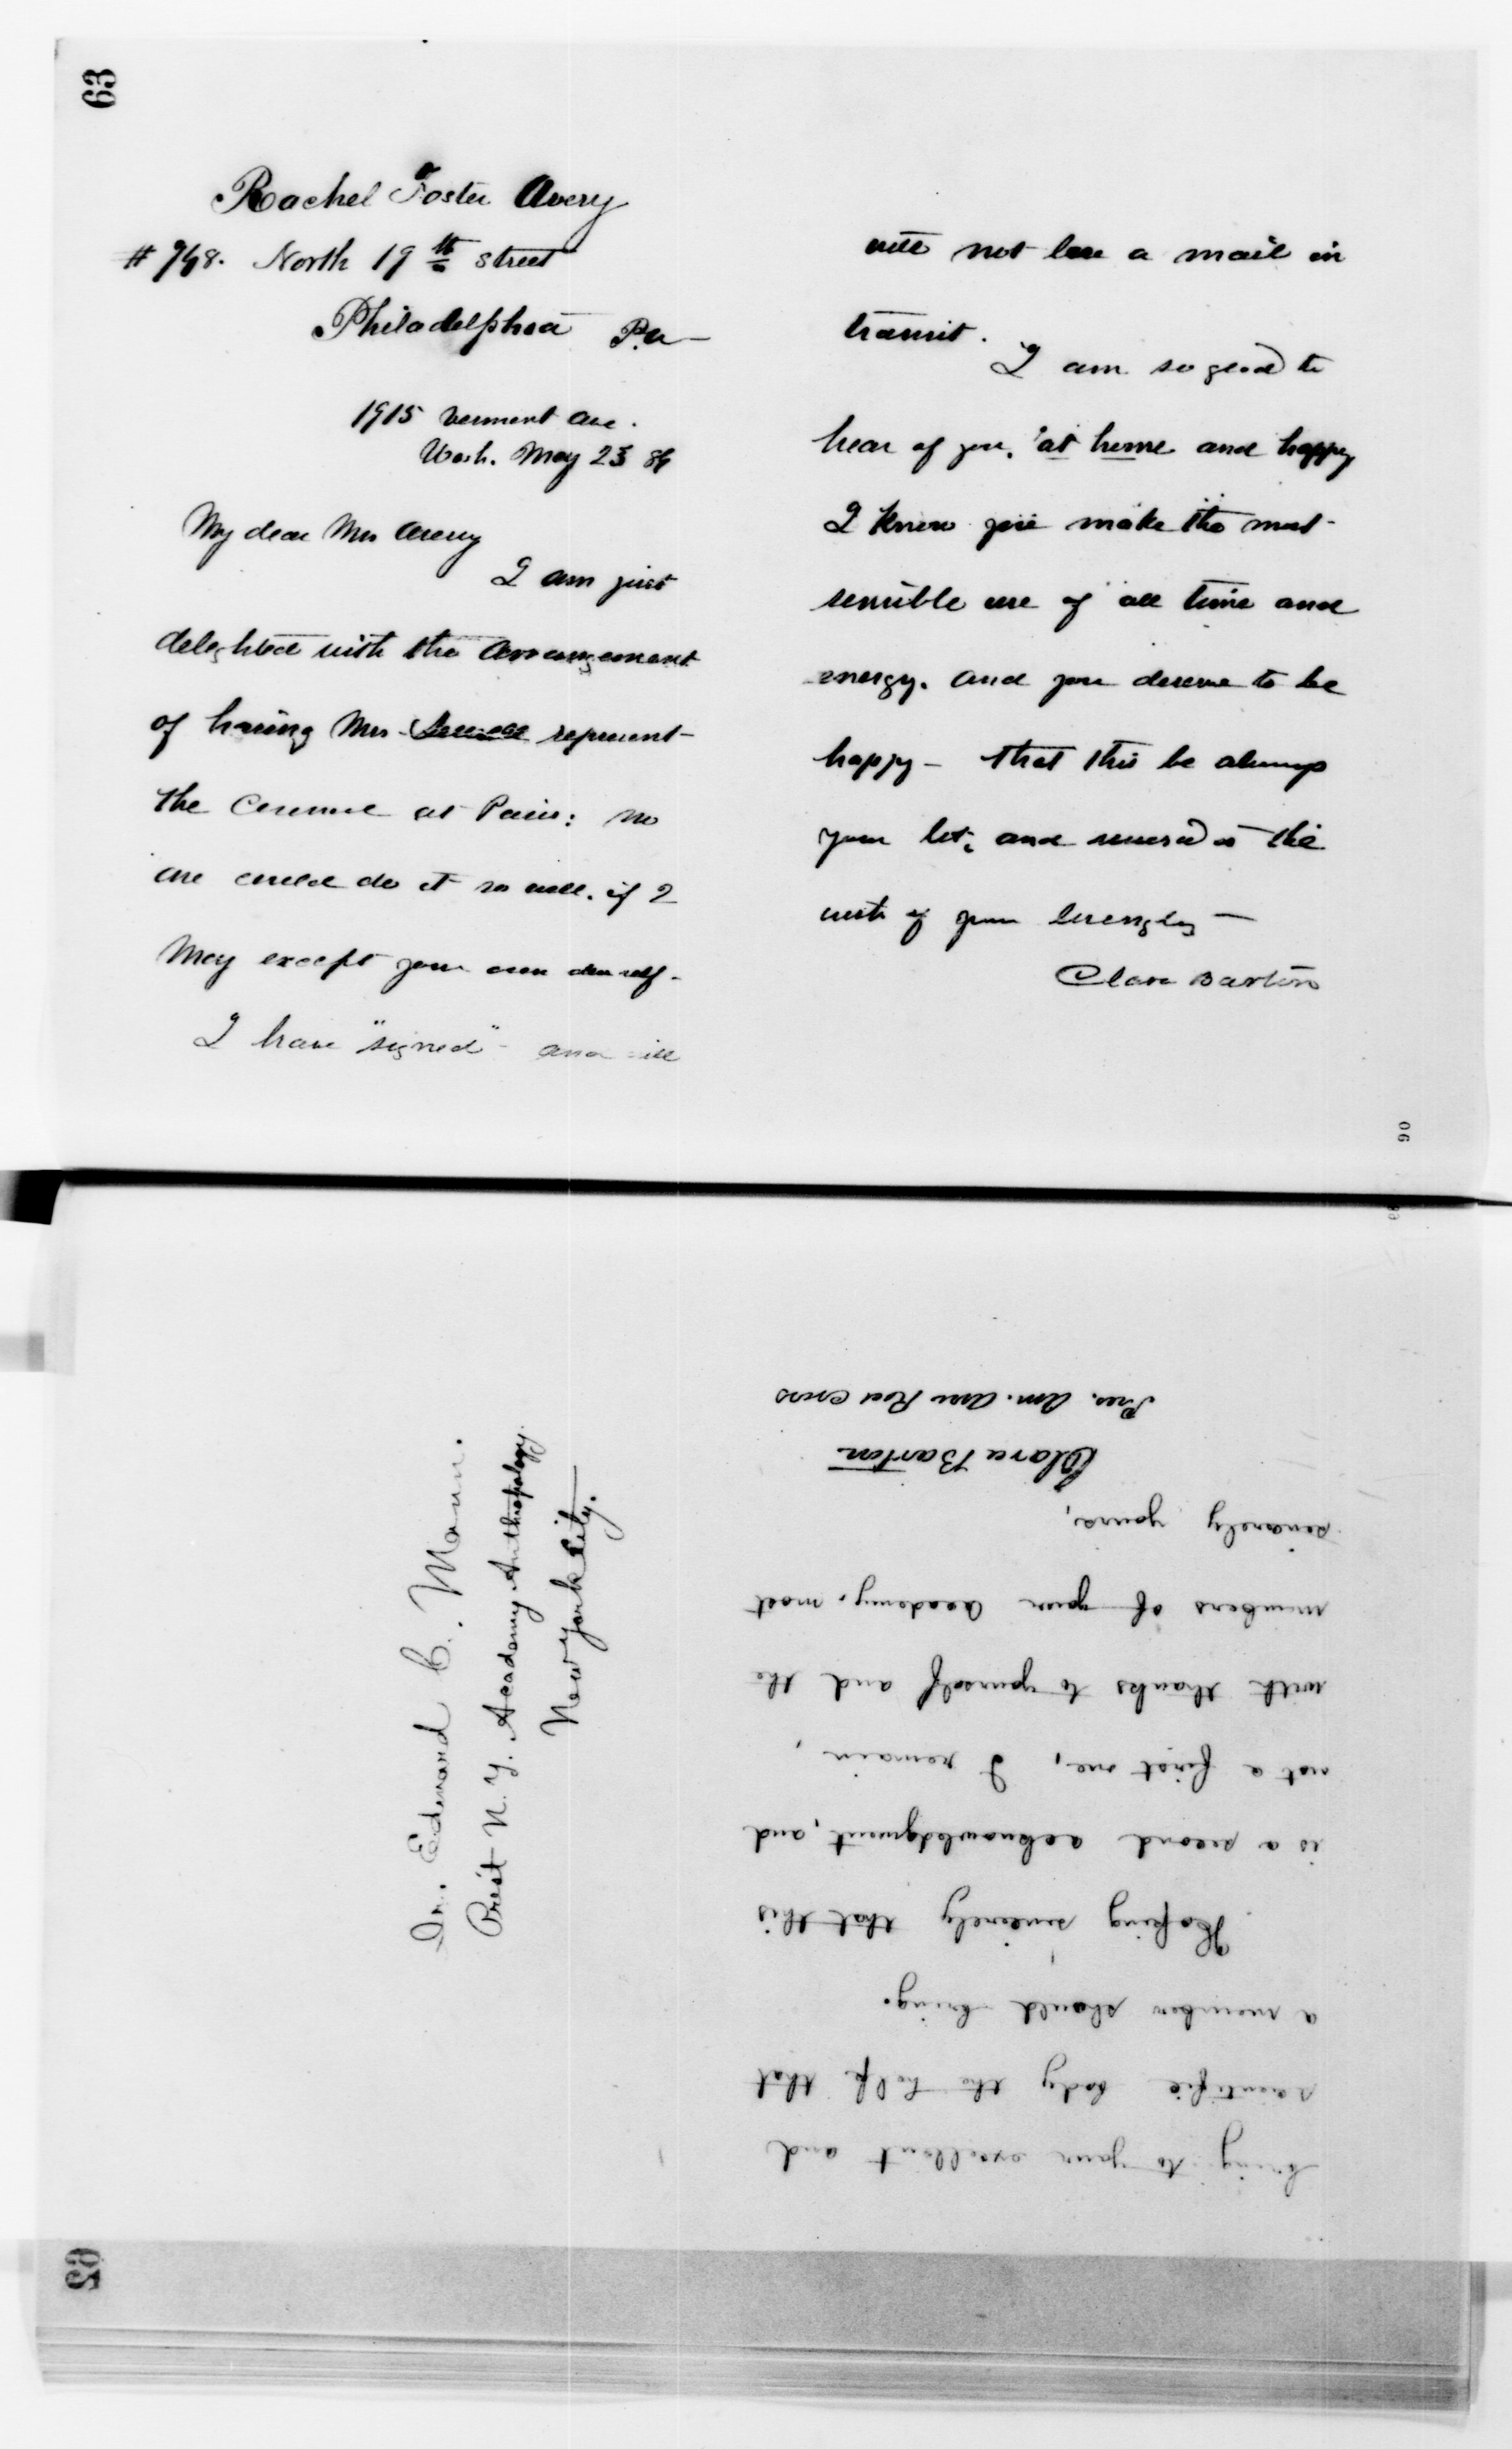 63
Rachel Foster Avery
# 748. North 19th street
Philadelphia Pa —
1915 Vermont Ave.
Wash. May 23 89
My dear Mrs Avery
I am just
delighted with the arrangement
of having Mrs Sewall represent
the Council at Paris: no
one could do it so well. if I
may except your own dear self.
I have "signed" and will
will not lose a mail in
transit.
I am so glad to
hear of you, 'at home and happy
I know you make the most
sensible use of all time and
energy. and you deserve to be
happy — that this be always
your lot, and reward is the
wish of your lovingly —
Clara Barton
90
bring to your excellent and
scientific body the help that
a member should bring.
Hoping sincerely that this
is a second acknowledgment, and
not a first one, I remain,
with thanks to yourself and the
members of your academy, most
sincerely yours,
Clara Barton
Pres. Am. Assn Red Cross
Dr. Edward C. Mann.
Pres't N. Y. Academy Anthropology.
New York City.
62